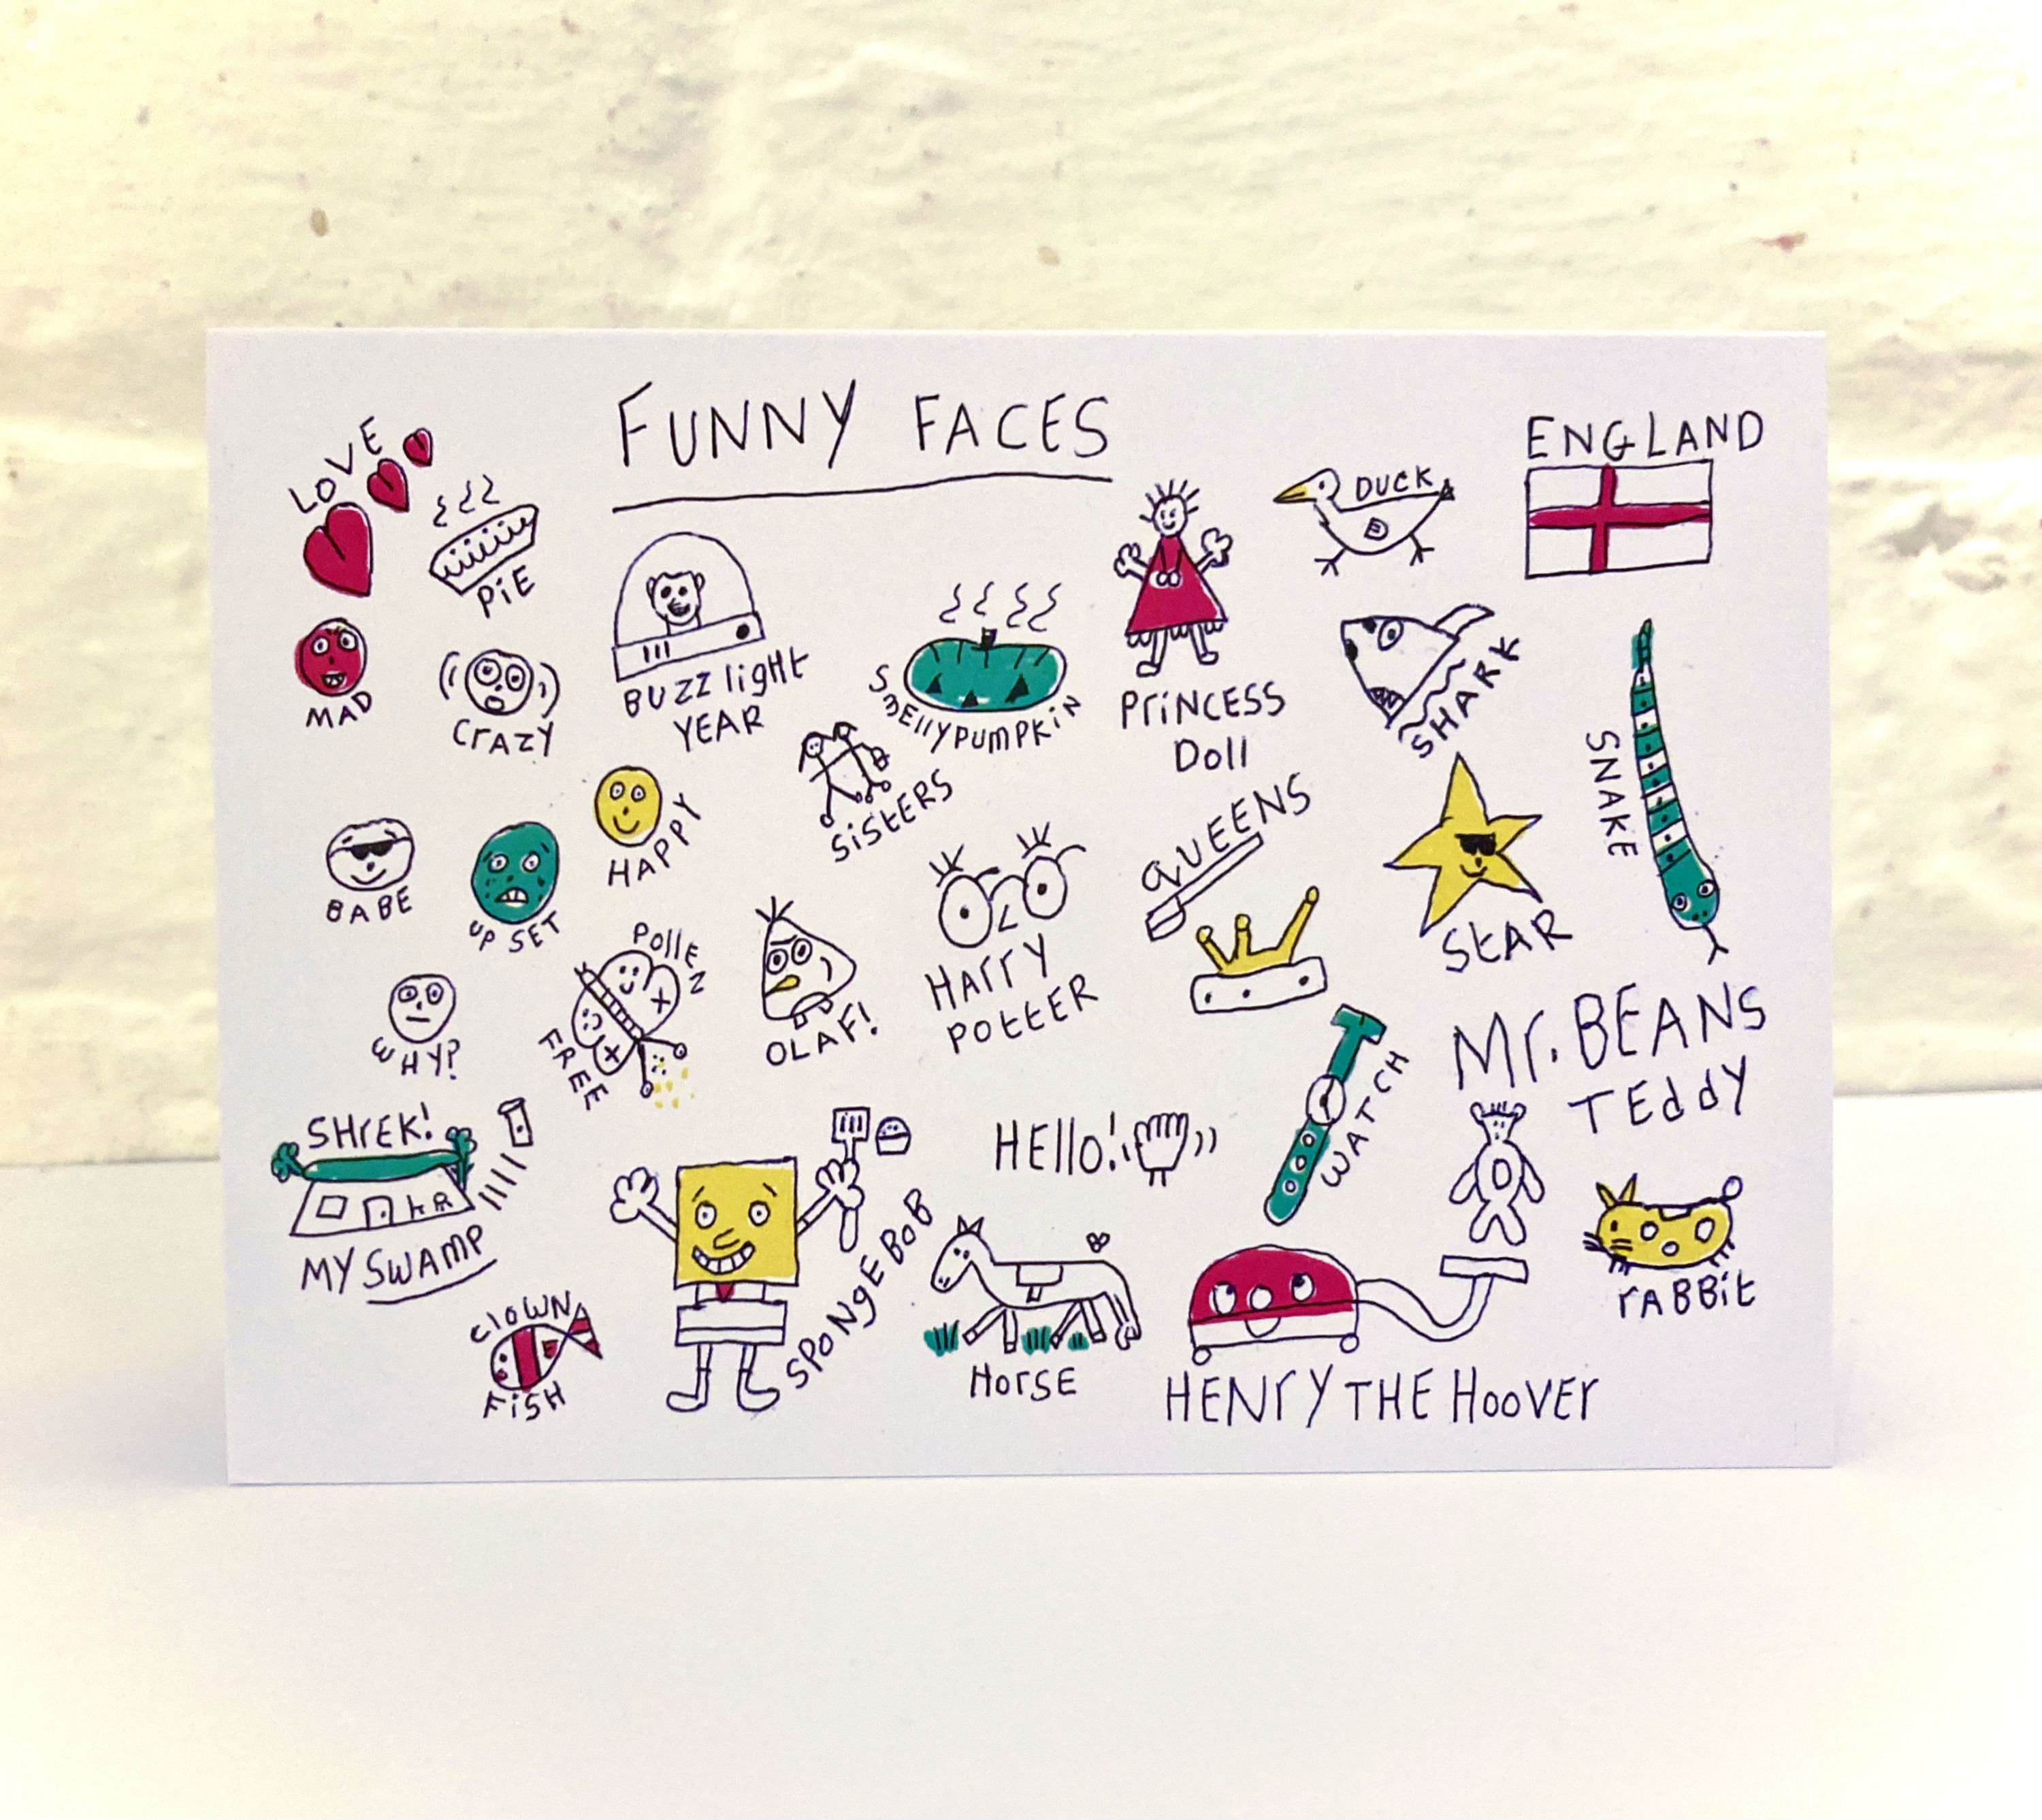 FUNNY FACES
LOVE
PiE
ENGLAND
DUCK
MAD
CrAZY
BUZZ light
YEAR
SmEllyPUMPKiN
PriNCESS
Doll
SHARK
SNAKE
HAPPY
SiStERS
QUEENS
BABE
UP SET
StAR
POllEN
FREE
OLAF!
HArrY
POttER
WHY?
Mr. BEANS
TEddY
WATCH
SHrEK!
MY SWAMP
HEllo!
SPoNgEBoB
rABBit
ClOWN
FiSH
HorSE
HENrY THE HooVEr